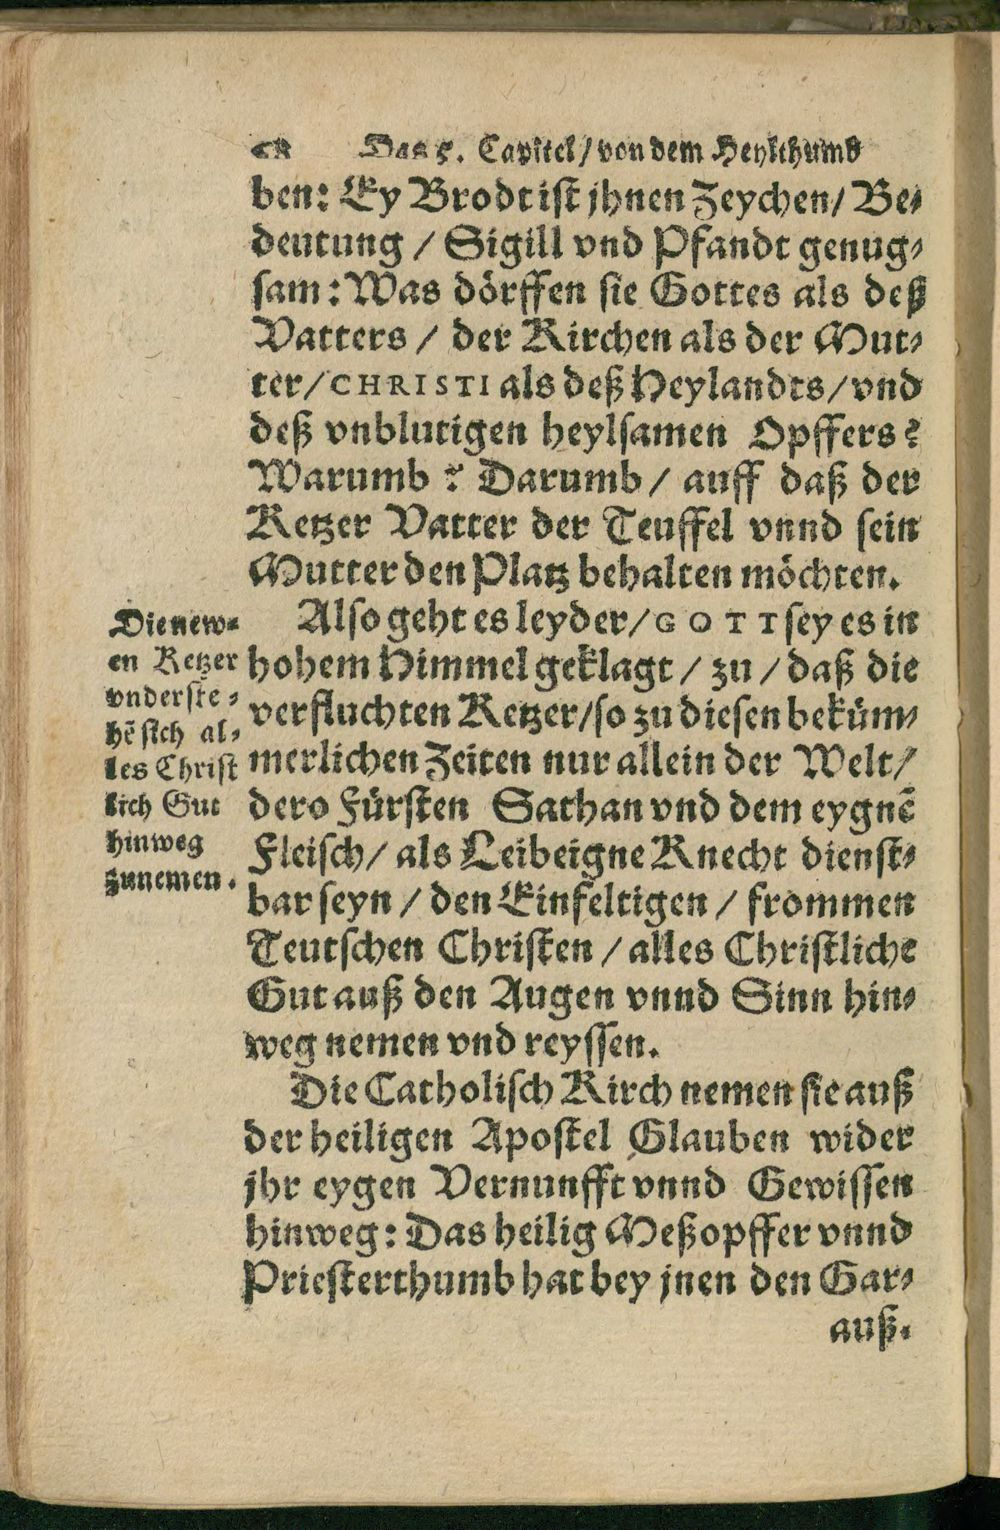 Das 5. Capitel / von dem Heylthumb
ben: Ey Brodt ist jhnen Zeychen / Be⸗
deutung / Sigill vnd Pfandt genug⸗
sam: Was dörffen sie Gottes als deß
Vatters / der Kirchen als der Mut⸗
ter / CHRISTI als deß Heylandts / vnd
deß vnblutigen heylsamen Opffers?
Warumb? Darumb / auff daß der
Ketzer Vatter der Teuffel vnnd sein
Mutter den Platz behalten möchten.
Also geht es leyder / GOTT sey es in
hohem Himmel geklagt / zu / daß die
verfluchten Ketzer / so zu diesen beküm⸗
merlichen Zeiten nur allein der Welt /
dero Fürsten Sathan vnd dem eygnē
Fleisch / als Leibeigne Knecht dienst⸗
bar seyn / den Einfeltigen / frommen
Teutschen Christen / alles Christliche
Gut auß den Augen vnnd Sinn hin⸗
weg nemen vnd reyssen.
Die new⸗
en Ketzer
vnderste⸗
hē sich al⸗
les Christ
lich Gut
hinweg
zunemen.
Die Catholisch Kirch nemen sie auß
der heiligen Apostel Glauben wider
jhr eygen Vernunfft vnnd Gewissen
hinweg: Das heilig Meßopffer vnnd
Priesterthumb hat bey jnen den Gar⸗
auß.